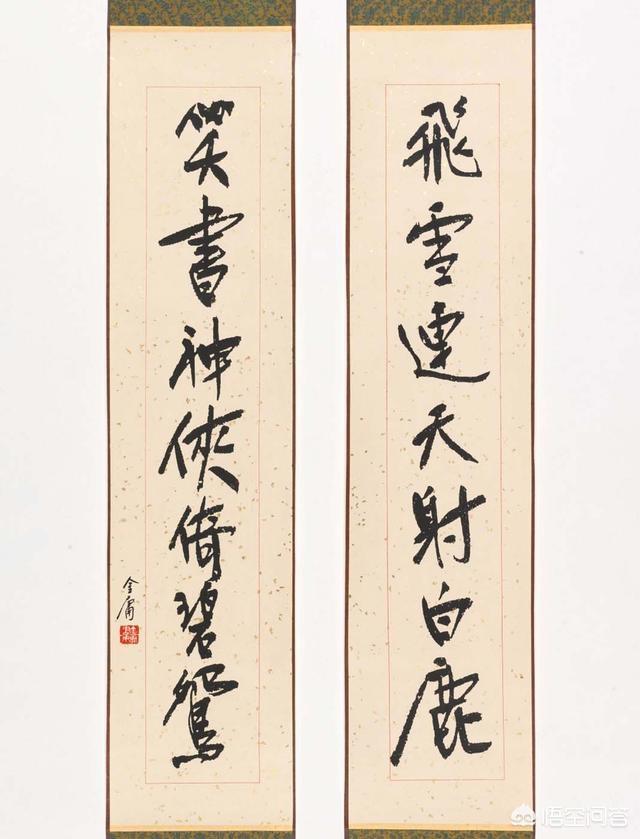 飛雪連天射白鹿
笑書神俠倚碧鴛
金庸
悟空问答